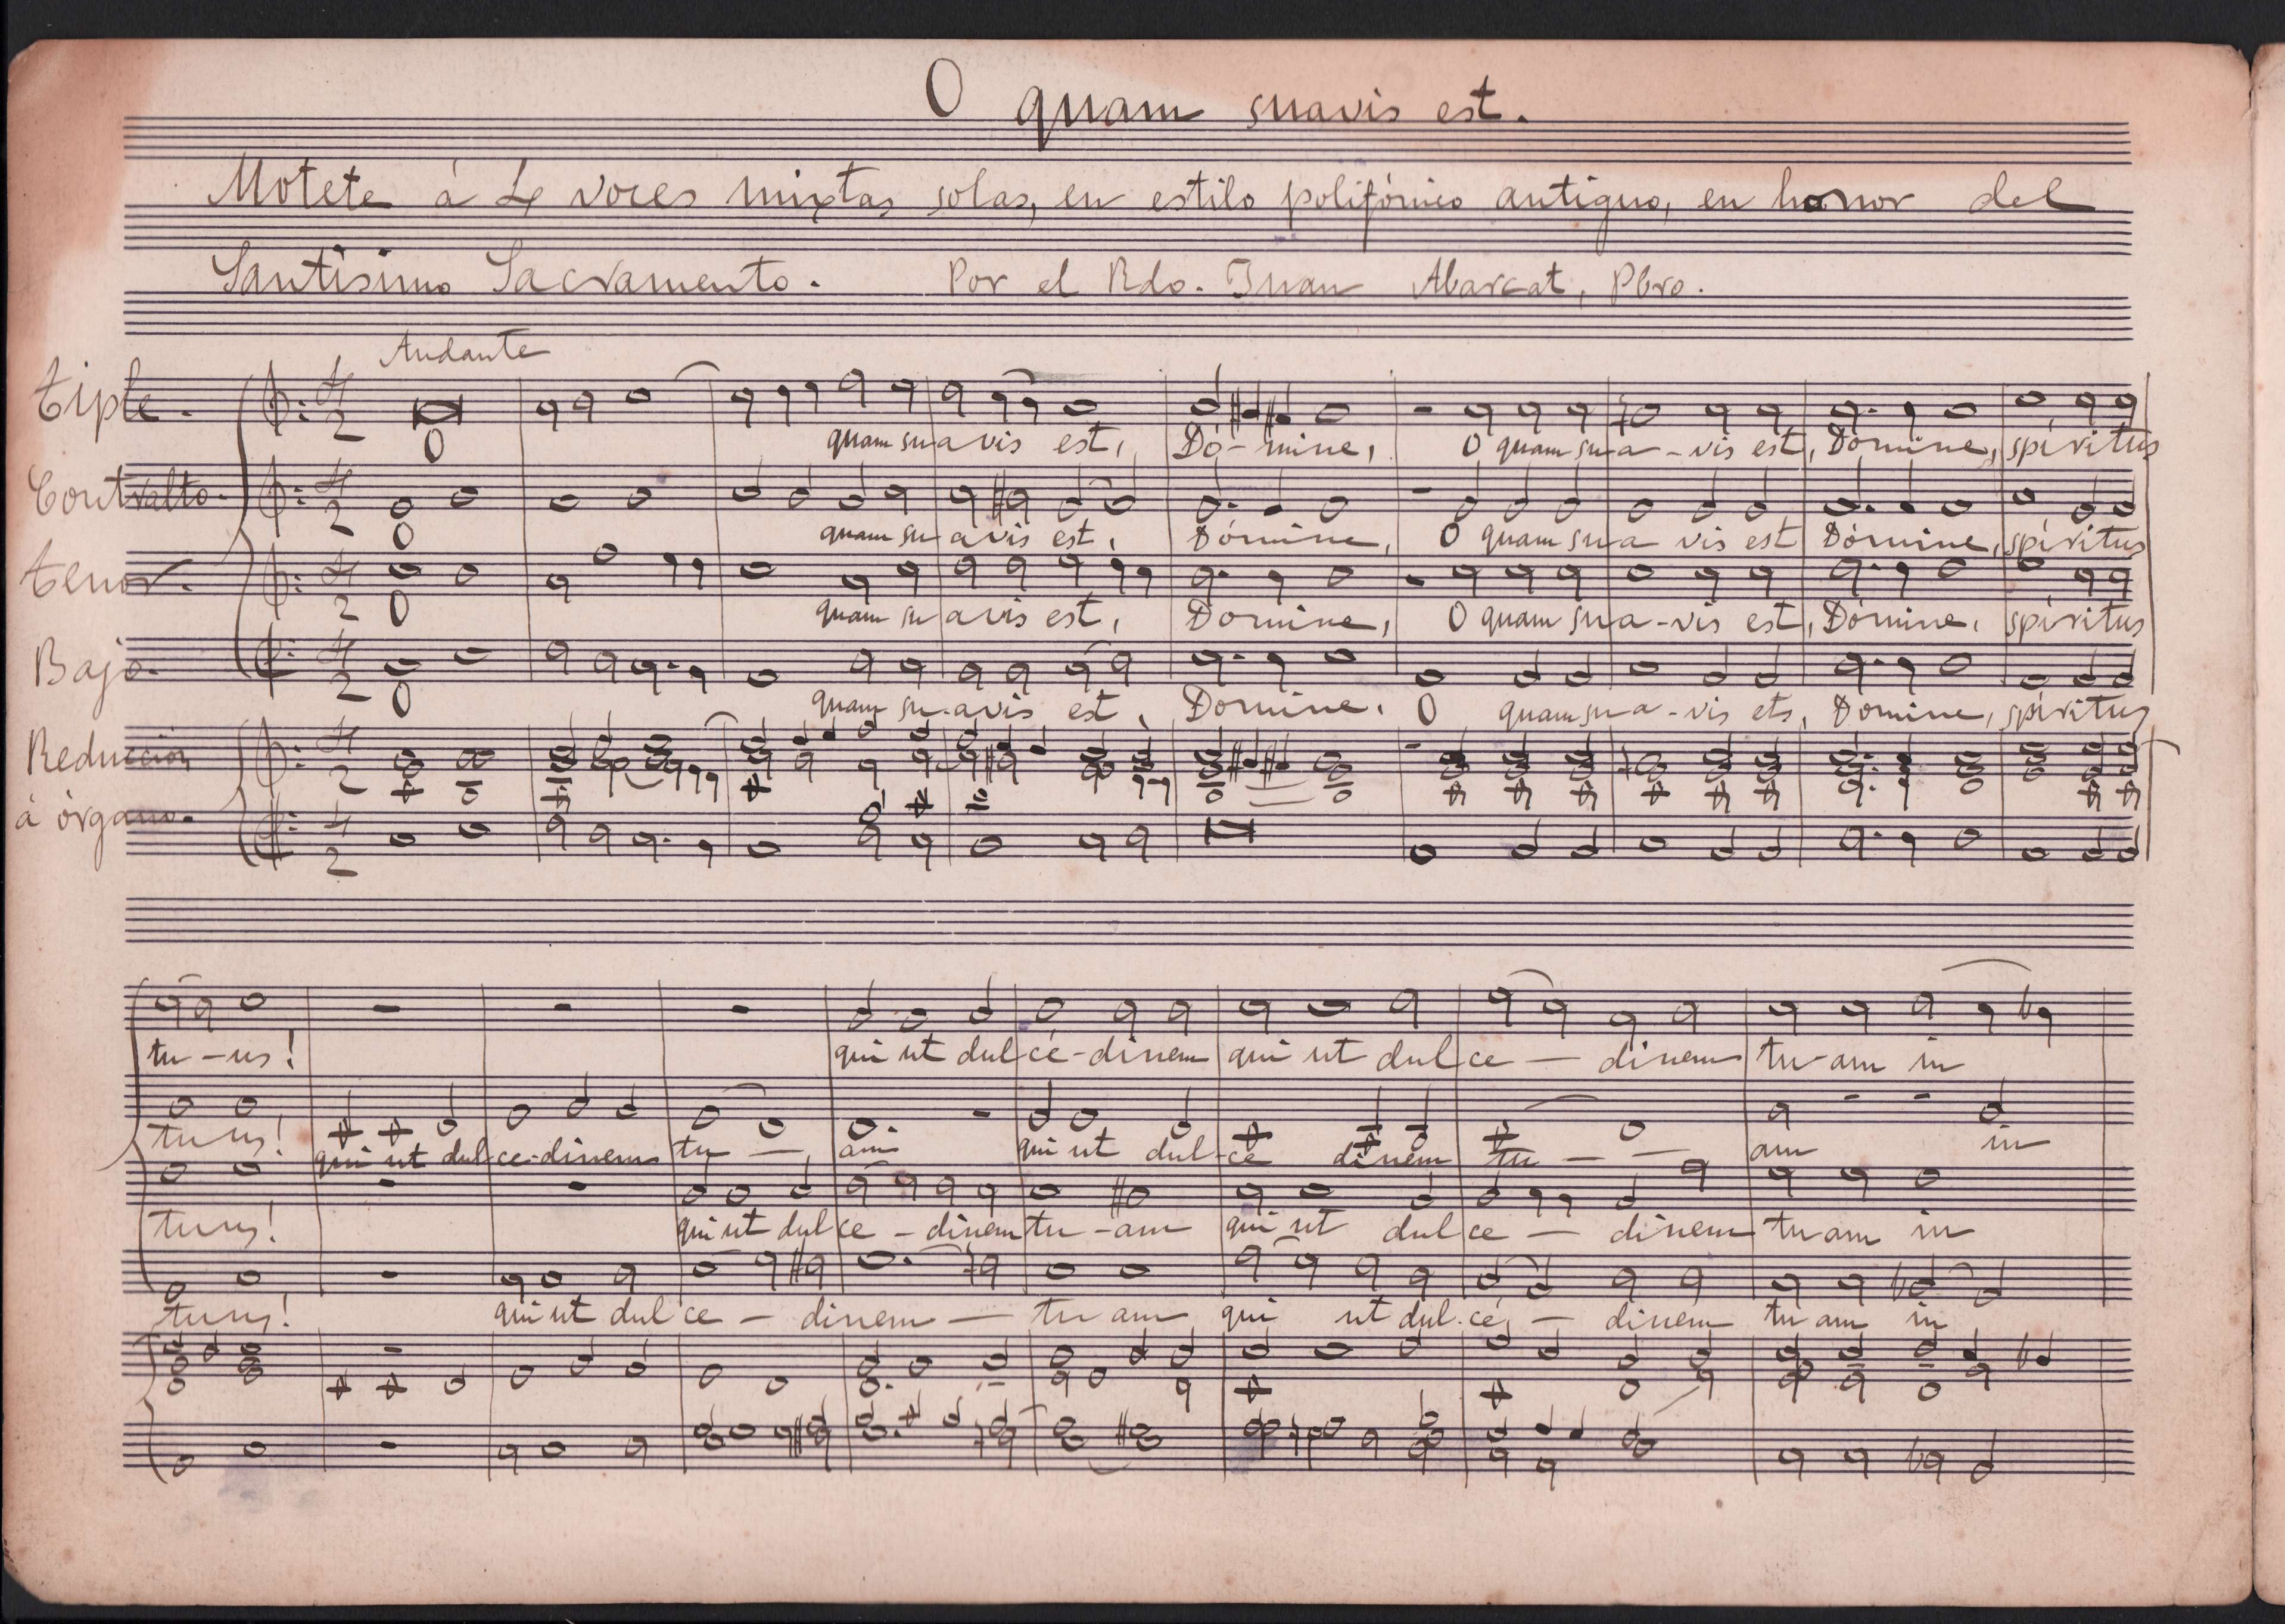 O quam suavis est.
Motete á 4 voces mixtas solas, en estilo polifónico antiguo, en honor del
Santisimo Sacramento. Por el Rdo. Juan Abarcat, Pbro.
Andante
Tiple. 4 2
O quam suavis est, Dó-mine, O quam sua-vis est, Dómine, spíritus
Contralto. 4 2
O quam suavis est, Dómine, O quam sua vis est Dómine, spíritus
Tenor. 4 2
O quam suavis est, Domine, O quam sua-vis est, Dómine, spíritus
Bajo. 4 2
O quam su-avis est, Domine. O quam sua-vis ets, Domine, spiritus
Reducción 4 2
á órgano. 4 2
tu-us! qui ut dulcé-dinem qui ut dulce — dinem tu-am in
tuus! qui ut dulce-dinem tu — am qui ut dul-ce dinem tu — — am in
tuus! qui ut dulce-dinem tu-am qui ut dulce — dinem tuam in
tuus! qui ut dulce — dinem — tu am qui ut dul.cé, — dinem tu am in